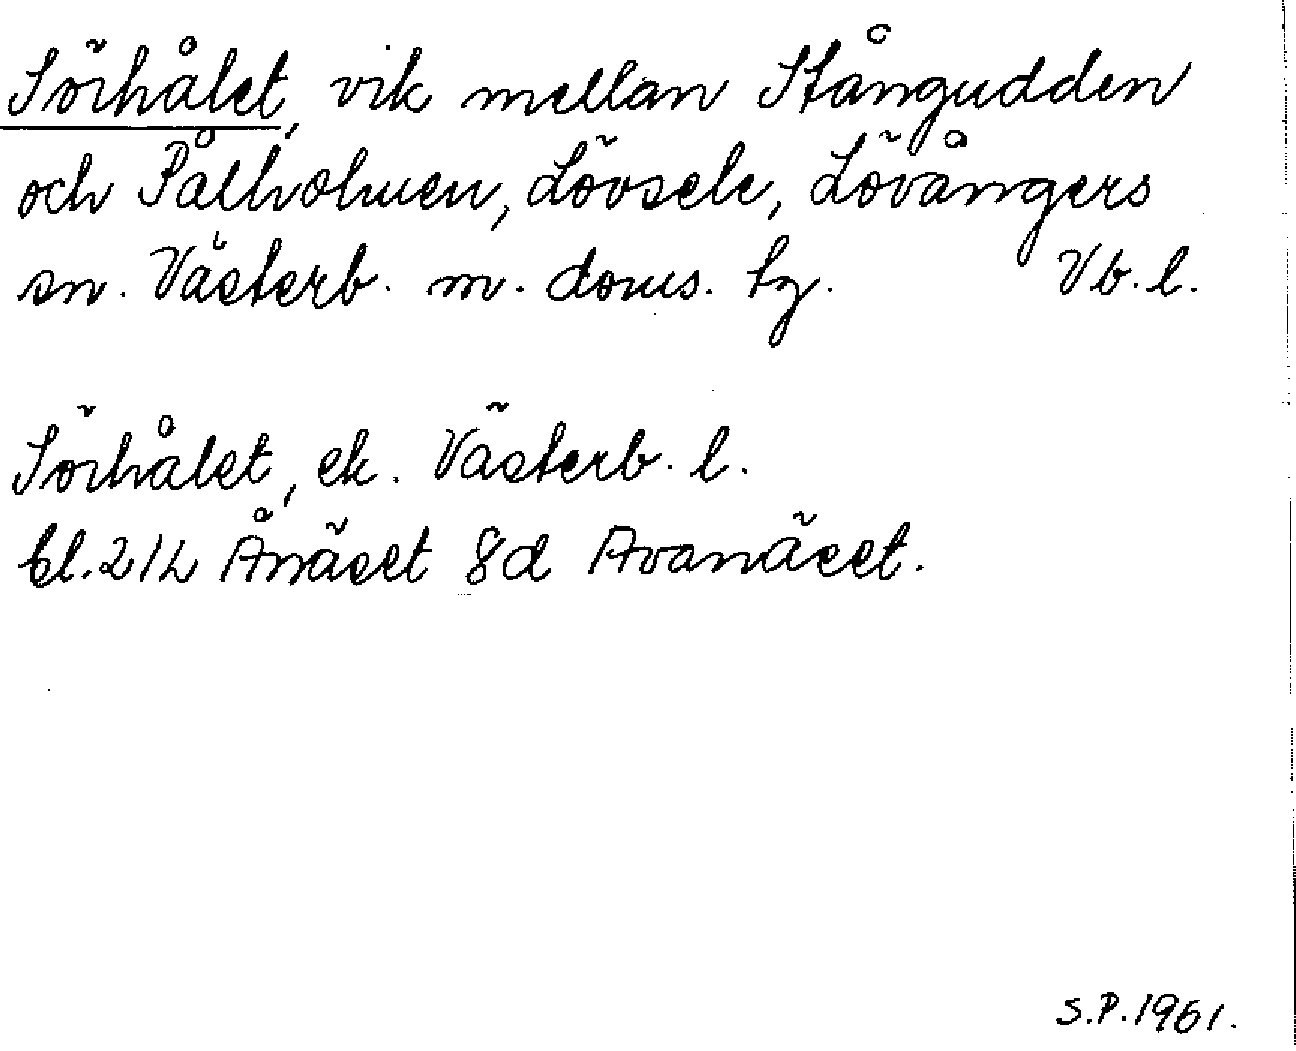 Sörhålet, vik mellan Stångudden
och Pålholmen, Lövsele, Lövångers
sn. Västerb. m. doms. tg. Vb. l.
Sörhålet, ek. Västerb. l.
bl. 21 h Ånäset 8d Avanäset.
S.P. 1961.